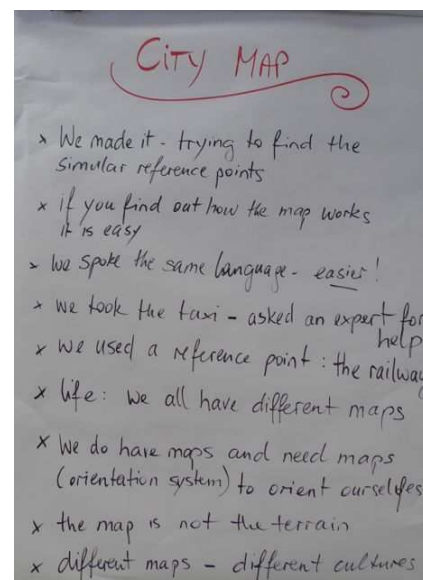 CITY MAP
x We made it - trying to find the
simular reference points
x if you find out how the map works
it is easy
x we spoke the same language - easier!
x we took the taxi - asked an expert for
help
x we used a reference point : the railway
x life: we all have different maps
x We do have maps and need maps
(orientation system) to orient ourselfes
x the map is not the terrain
x different maps - different cultures